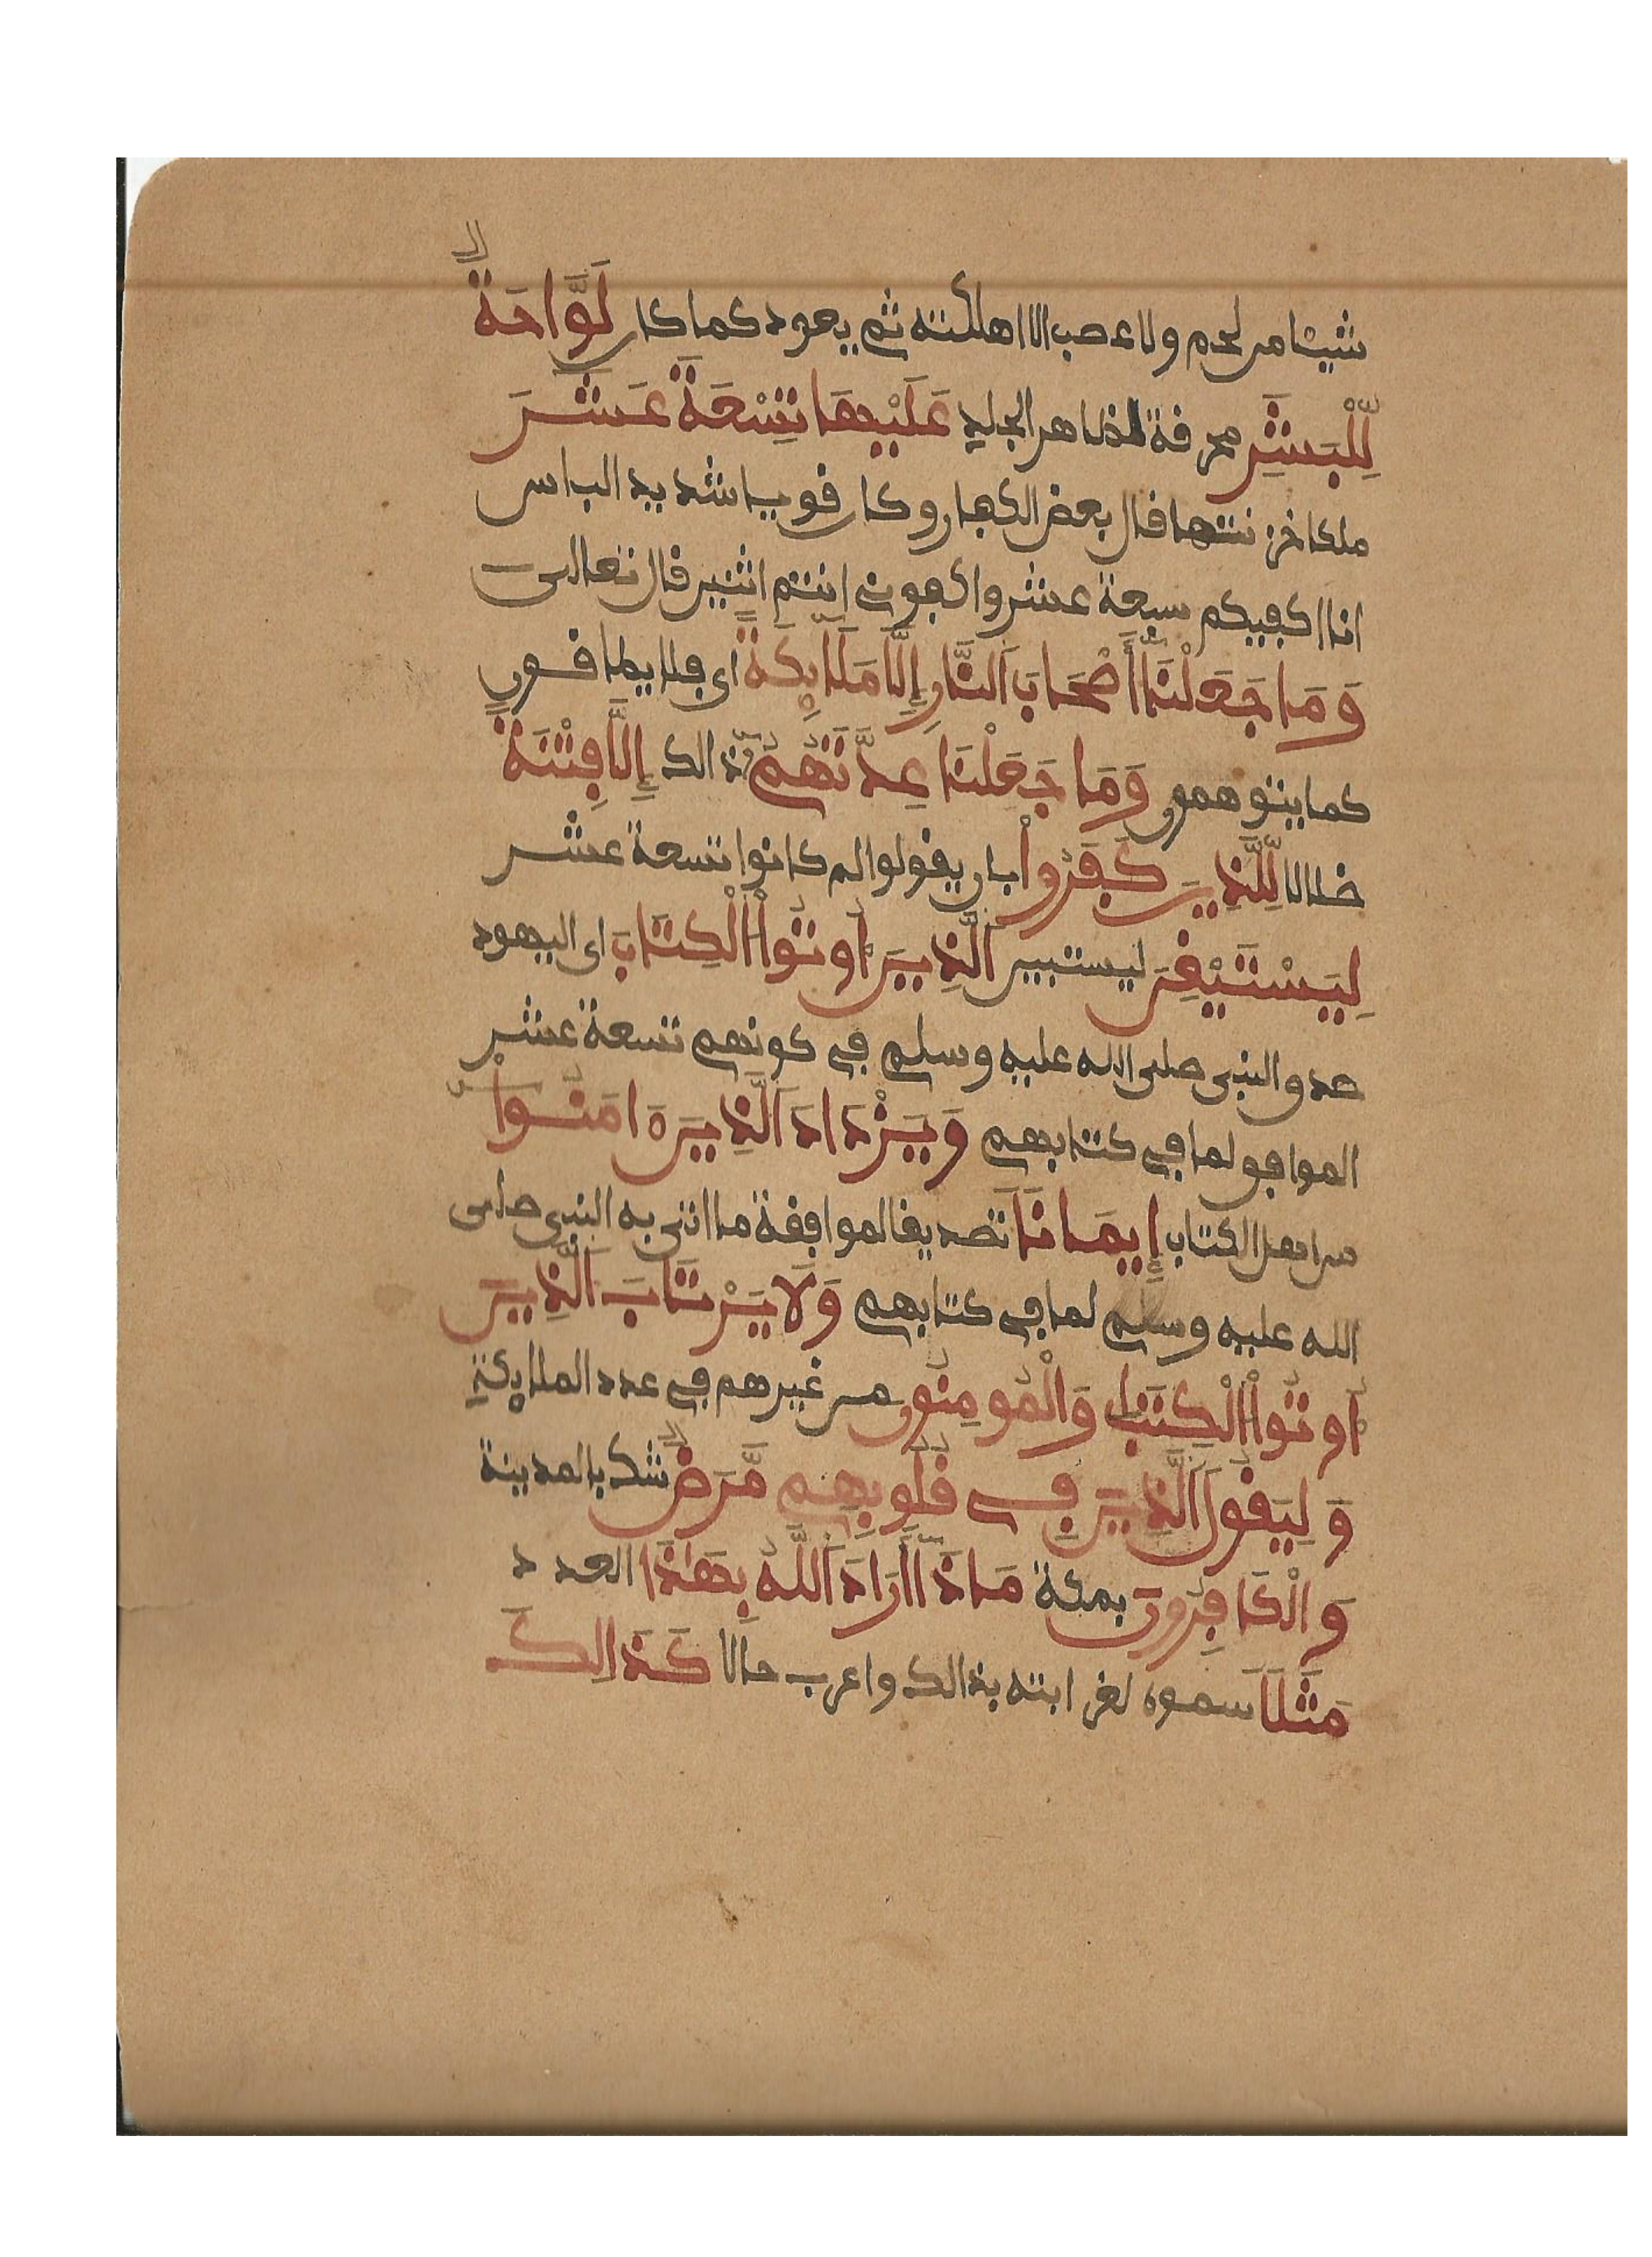 شيئا من لحم ولا عصب الا اهلكته ثم يعود كما كان لَوَّاحَةٌ
لِّلْبَشَرِ محرقة لظاهر الجلد عَلَيْهَا تِسْعَةَ عَشَرَ
ملكا خزنتها قال بعض الكفار وكان قويا شديد الباس
انا اكفيكم سبعة عشر واكفوني انتم اثنين قال تعالى
وَمَا جَعَلْنَا أَصْحَابَ اَلنَّارِ إِلَّا مَلَائِكَةً اى فلا يطاقون
كما يتوهمون وَمَا جَعَلْنَا عِدَّتَهُمْ ذالك إِلَّا فِتْنَةً
ضلالا لِّلَّذِينَ كَفَرُواْ بان يقولوا لم كانوا تسعة عشر
لِيَسْتَيْقِنَ ليستبين اَلَّذِينَ أُوتُواْ اُلْكِتَابَ اى اليهود
صدق النبي صلى الله عليه وسلم في كونهم تسعة عشر
الموافق لما في كتابهم وَيَزْدَادَ اَلَّذِينَ ءَامَنُوا
من اهل الكتاب إِيمَانًا تصديقا لموافقة ما اتى به النبي صلى
الله عليه وسلم لما في كتابهم وَلَا يَرْتَابَ اَلَّذِينَ
أُوتُواْ اُلْكِتَابَ وَالْمُومِنُونَ من غيرهم في عدد الملائكة
وَلِيَقُولَ اَلَّذِينَ فِي قُلُوبِهِم مَّرَضٌ شك بالمدينة
وَالْكَافِرُونَ بمكة مَاذَا أَرَادَ اَللَّهُ بِهَذَا العدد
مَثَلًا سموه لغرابته بذالك واعرب حالا كَذَالِكَ